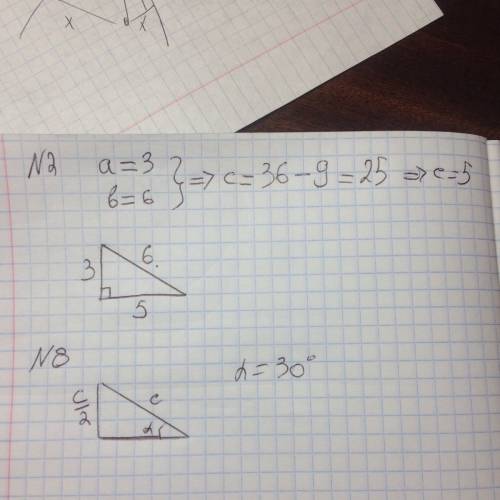 x x
N2 a=3
b=6 } ⇒ c=36-9=25 ⇒ c=5
3 6.
5
N8
c/2 c α α=30°